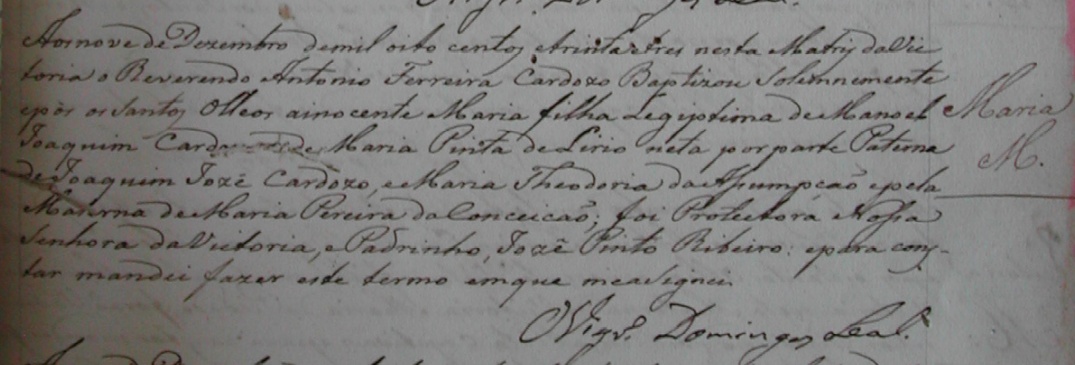 Aos nove de Dezembro de mil oito centos e trinta e tres nesta Matriz da Vic
toria o Reverendo Antonio Ferreira Cardozo Baptizou Solemnemente
e pôs os Santos Olleos a inocente Maria filha Legiptima de Manoel
Joaquim Cardozo e de Maria Pinta de Lirio neta por parte Paterna
de Joaquim Jozé Cardozo, e Maria Theodoria da Assumpcaõ e pela
Materna de Maria Pereira da Conceicaõ; foi Protectora Nossa
Senhora da Victoria, e Padrinho, Jozé Pinto Ribeiro: e para cons-
tar mandei fazer este termo em que me asignei.
O Vigr.º Domingos Leal.
Maria
M.